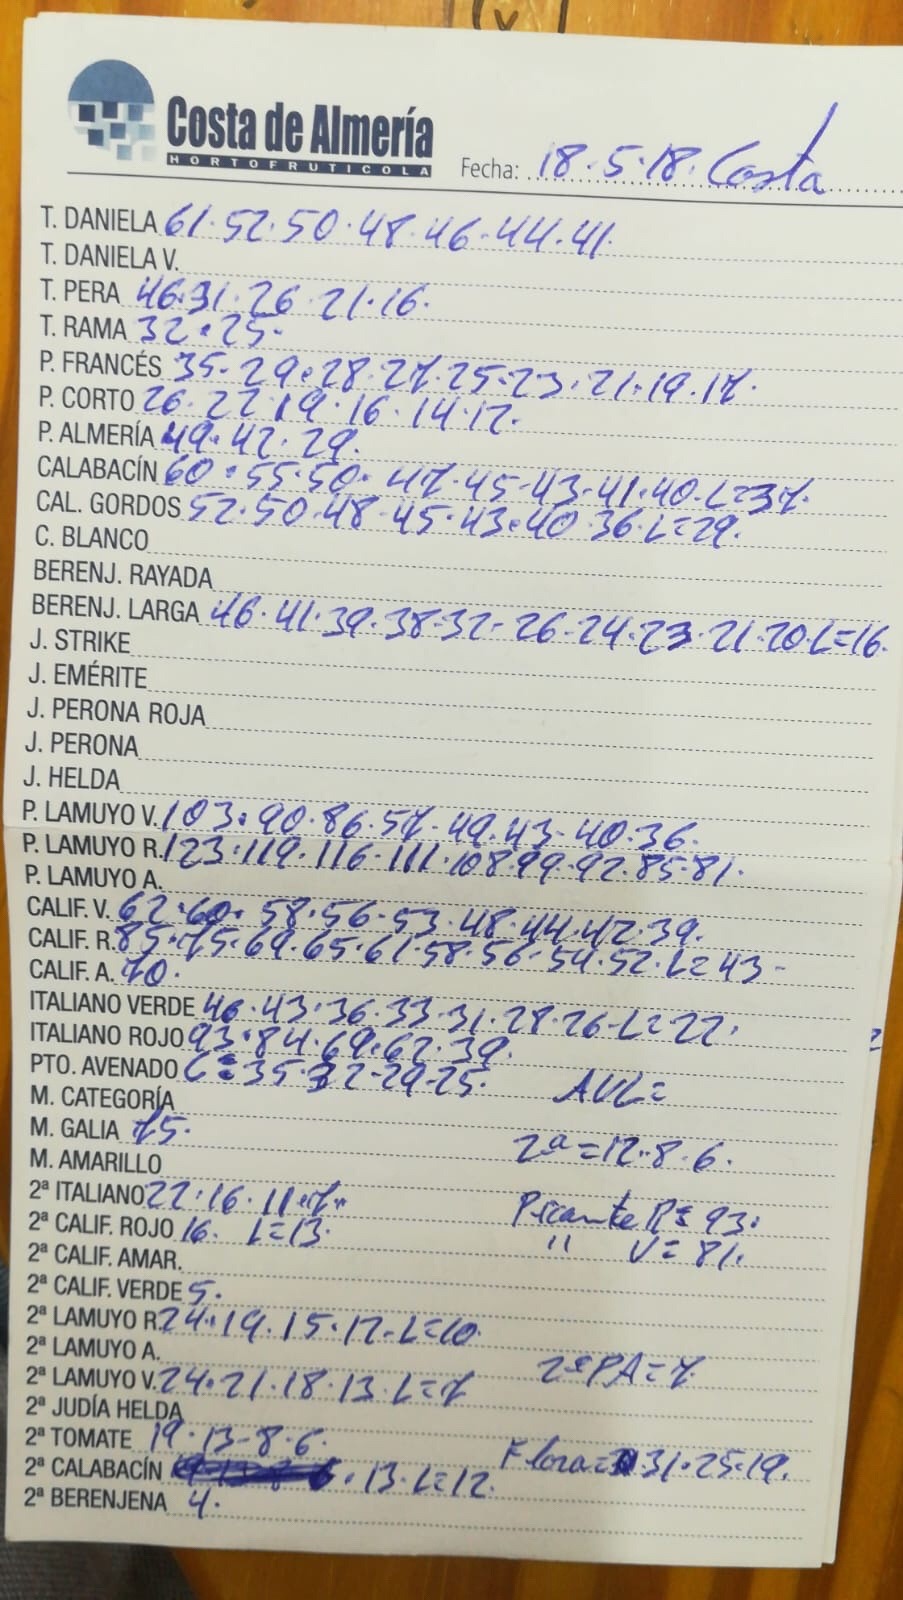 Costa de Almería
HORTOFRUTICOLA
Fecha: 18.5.18. Costa
T. DANIELA 61.52.50.48.46.44.41.
T. DANIELA V.
T. PERA 46.31.26 21.16.
T. RAMA 32.25.
P. FRANCÉS 35-29.28.27.25-23.21.19.17.
P. CORTO 26.22.19.16.14.12.
P. ALMERÍA 49.42.29.
CALABACÍN 60.55.50.47.45-43-41.40.L=37.
CAL. GORDOS 52.50.48-45.43.40.36.L=29.
C. BLANCO
BERENJ. RAYADA
BERENJ. LARGA 46.41.39.38-32-26-24.23.21.20.L=16.
J. STRIKE
J. EMÉRITE
J. PERONA ROJA
J. PERONA
J. HELDA
P. LAMUYO V. 103.90.86.57-49.43-40.36.
P. LAMUYO R. 123.119.116-111.108.99.92.85-81.
P. LAMUYO A.
CALIF. V. 62.60.58.56-53.48.44.42.39.
CALIF. R. 85.75.69.65.61.58.56-54.52.L=43-
CALIF. A. 70.
ITALIANO VERDE 46.43.36.33-31.28.26-L=22.
ITALIANO ROJO 93.84.69.62.39.
PTO. AVENADO C=35-32-29-25. AVL=
M. CATEGORÍA
M. GALIA 75. 2ª=12.8.6.
M. AMARILLO
2ª ITALIANO 22.16.11.7. Picante R=93.
2ª CALIF. ROJO 16. L=13. " V=81.
2ª CALIF. AMAR.
2ª CALIF. VERDE 5.
2ª LAMUYO R. 24.19.15.12-L=10.
2ª LAMUYO A. 2ªPA=7.
2ª LAMUYO V. 24.21.18.13.L=7
2ª JUDÍA HELDA
2ª TOMATE 19.13-8.6. Flora=31.25.19.
2ª CALABACÍN 13.L=12.
2ª BERENJENA 4.